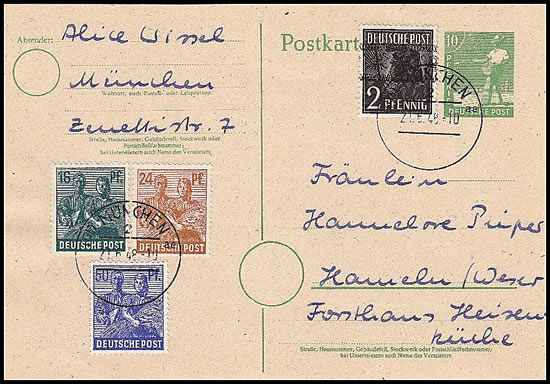 Absender: Alice Wissel
München
Wohnort, auch Zustell- oder Leitpostamt
Zenettistr. 7
Straße, Hausnummer, Gebäudeteil, Stockwerk oder
Postschließfachnummer;
bei Untermietern auch Name des Vermieters
Postkarte
DEUTSCHE POST
2 PFENNIG
10
DEUTSCHE POST
MÜNCHEN
2
21.6.48-10
16 Pf
DEUTSCHE POST
24 Pf
DEUTSCHE POST
MÜNCHEN
2
21.6.48-10
50 Pf
DEUTSCHE POST
Fräulein
Hannelore Pieper
Hameln/Weser
Forsthaus Heisen
küche
Straße, Hausnummer, Gebäudeteil, Stockwerk oder Postschließfachnummer;
bei Untermietern auch Name des Vermieters